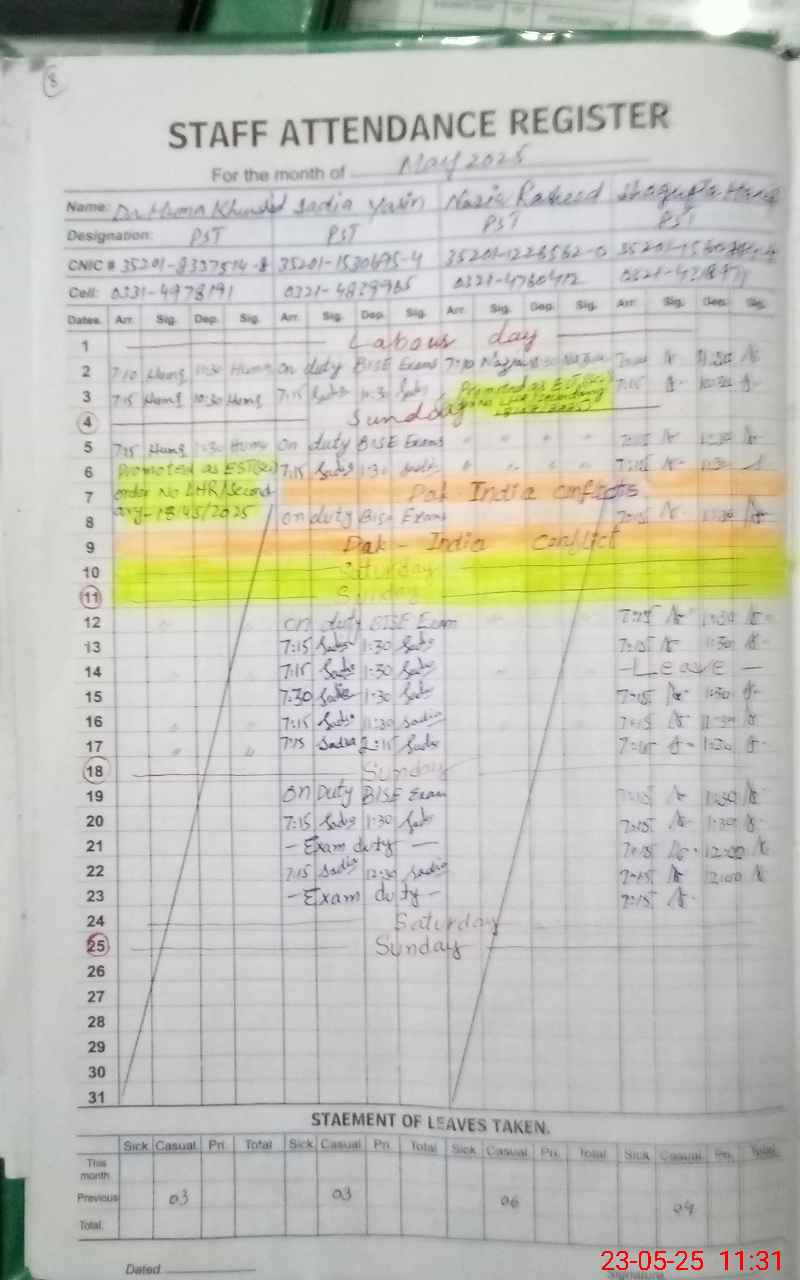 8
STAFF ATTENDANCE REGISTER
For the month of May 2025
Name: Dr Huma Khurshid Sadia Yasin Nazia Rasheed Shagufta
Designation: PST PST PST PST
CNIC # 35201-8337514-8 35201-1530695-4 35201-1228562-0
Cell: 0331-4978191 0321-4829965 0321-4760412
Dates. Arr. Sig. Dep. Sig. Arr. Sig. Dep. Sig. Arr. Sig. Dep. Sig. Arr. Sig. Dep. Sig.
1 Labour day
2 7:10 Huma 11:30 Huma on duty BISE Exams 7:10
3 7:15 Huma 10:30 Huma 7:15 Sadia 10:30 Sadia Promoted as EST 7:15
4 Sunday
5 7:15 Huma 1:30 Huma on duty BISE Exams 7:15 1:30
6 Promoted as EST(Sci) 7:15 Sadia 1:30 Sadia 7:15 1:30
order No LHR/Second
7 Pak India conflicts
ary-1845/2025
8 on duty Bise Exams 7:15 1:30
9 Pak - India conflict
10 Saturday
11 Sunday
12 on duty BISE Exam 7:15 1:30
13 7:15 Sadia 1:30 Sadia 7:15 1:30
14 7:15 Sadia 1:30 Sadia - Leave -
15 7:30 Sadia 1:30 Sadia 7:15 1:30
16 7:15 Sadia 11:30 Sadia 7:15 11:30
17 7:15 Sadia 2:15 Sadia 7:15 1:30
18 Sunday
19 on Duty BISE Exam 7:15 1:30
20 7:15 Sadia 1:30 Sadia 7:15 1:30
21 - Exam duty - 7:15 12:00
22 7:15 Sadia 12:30 Sadia 7:15 12:00
23 - Exam duty - 7:15
24 Saturday
25 Sunday
26
27
28
29
30
31
STAEMENT OF LEAVES TAKEN.
Sick Casual Pri. Total Sick Casual Pri. Total Sick Casual Pri. Total Sick Casual Pri. Total
This
month
Previous 03 03 06 04
Total.
Dated. Signature.
23-05-25 11:31